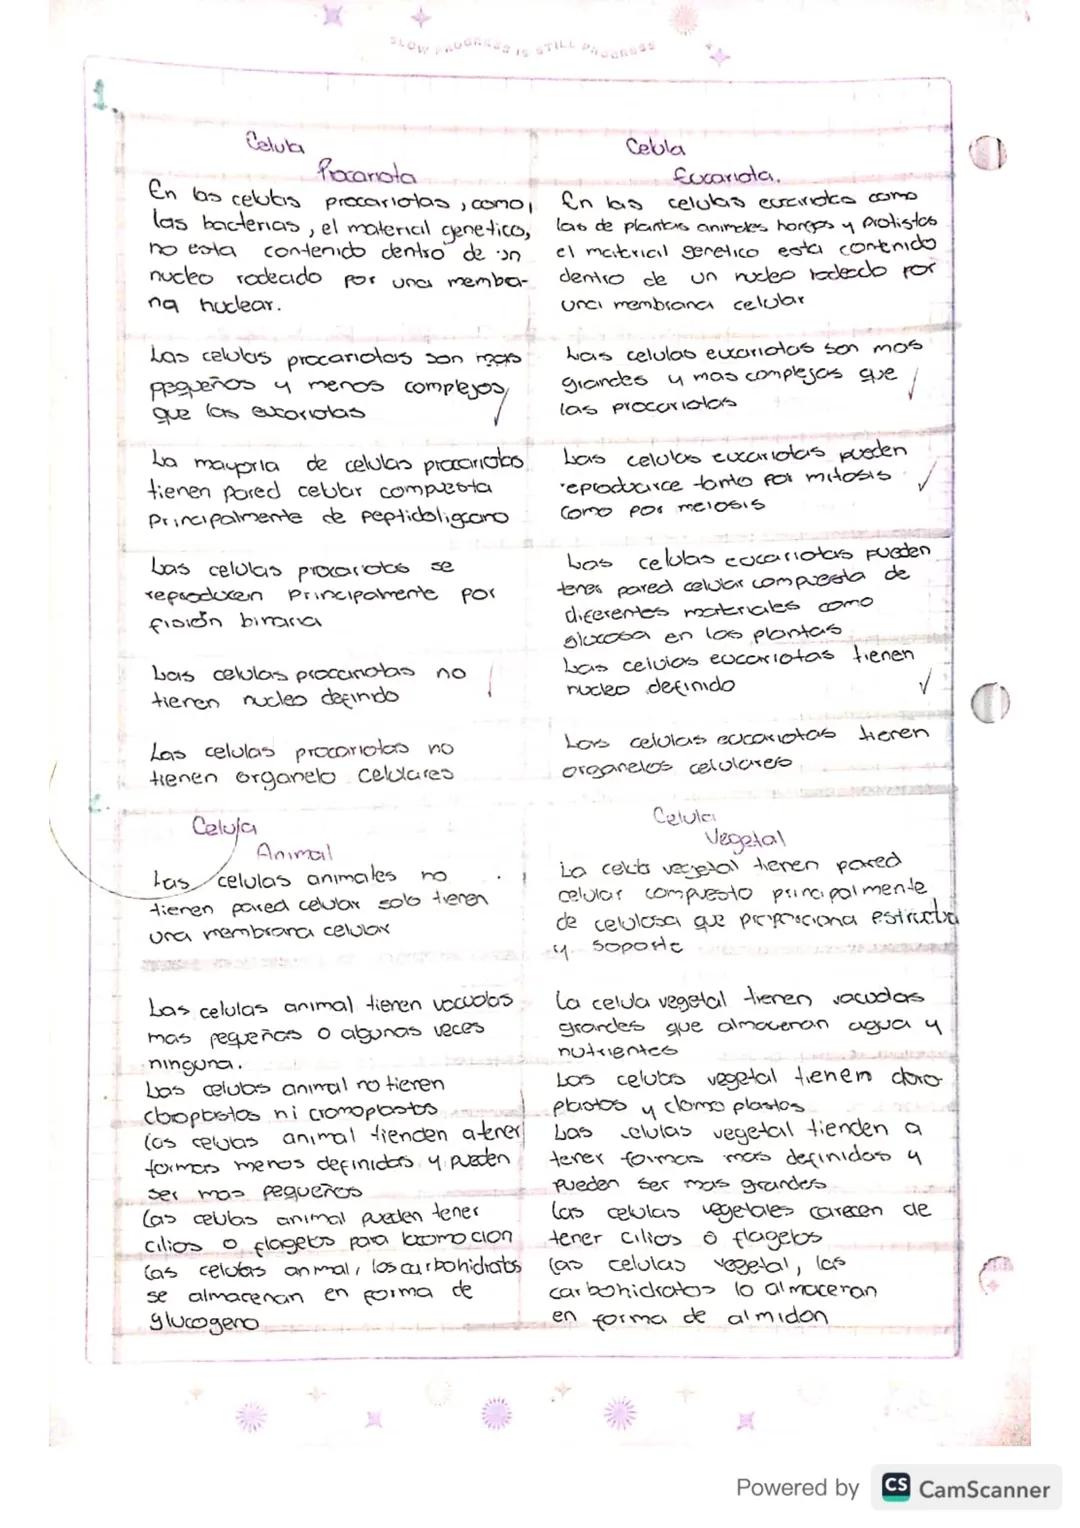 SLOW PROGRESS IS STILL PROGRESS
1.
Celula
Procariota
En las celulas procariotas, como,
las bacterias, el material genetico,
no esta contenido dentro de un
nucleo rodeado por una memba-
na nuclear.
Las celulas procariotas son mas
pequeños y menos complejos,
que las eucariotas
La mayoria de celulas procariotas
tienen pared celular compuesta
principalmente de peptidoligcano
Las celulas procariotas se
reproducen principalmente por
fisión binaria
Las celulas procariotas no
tienen nucleo definido
Las celulas procariotas no
tienen organelo celulares
Celula
Eucariota.
En las celulas eucariotas como
las de plantas animales hongos y protistas
el material genetico esta contenido
dentro de un nucleo rodeado por
una membrana celular
Las celulas eucariotas son mas
grandes y mas complejas que
las procariotas
Las celulas eucariotas pueden
reproducirce tanto por mitosis
como por meiosis
Las celulas eucariotas pueden
tener pared celular compuesta de
diferentes materiales como
glucosa en las plantas
Las celulas eucariotas tienen
nucleo definido
Las celulas eucariotas tienen
organelos celulares
2.
Celula
Animal
Las celulas animales no
tienen pared celular solo tienen
una membrana celular
Las celulas animal tienen vacuolas
mas pequeñas o algunas veces
ninguna.
Las celulas animal no tienen
cloroplastos ni cromoplastos
las celulas animal tienden a tener
formas menos definidas y pueden
ser mas pequeños
las celulas animal pueden tener
cilios o flagelos para locomocion
las celulas animal, los carbohidratos
se almacenan en forma de
glucogeno
Celula
Vegetal
La celula vegetal tienen pared
celular compuesto principalmente
de celulosa que proporciona estructura
y soporte
la celula vegetal tienen vacuolas
grandes que almacenan agua y
nutrientes
Las celulas vegetal tienen cloro
plastos y clomo plastos
Las celulas vegetal tienden a
tener formas mas definidas y
pueden ser mas grandes
las celulas vegetales carecen de
tener cilios o flagelos
las celulas vegetal, los
carbohidratos lo almaceran
en forma de almidon
Powered by CS CamScanner